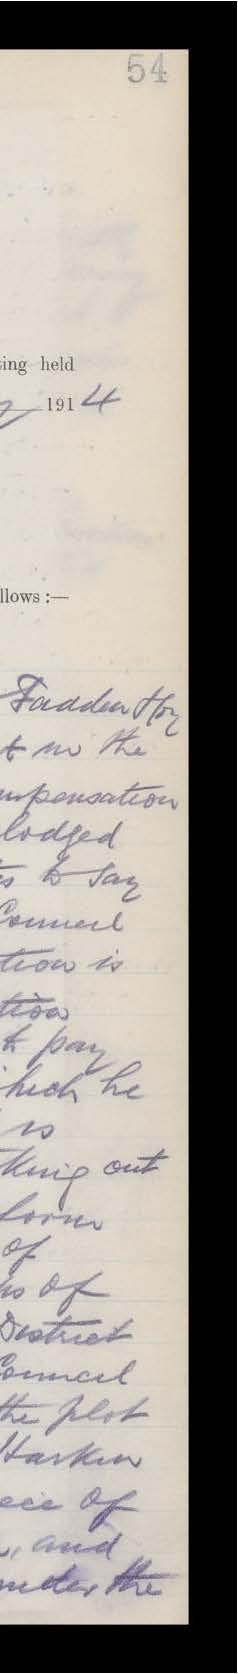 54
ting held
y 1914
llows :—
Fadden Hon
t in the
mpensation
lodged
s to say
Council
tion is
tion
t pay
hich he
is
king out
form
of
ns of
District
Council
the plot
Harkin
iece of
, and
under the